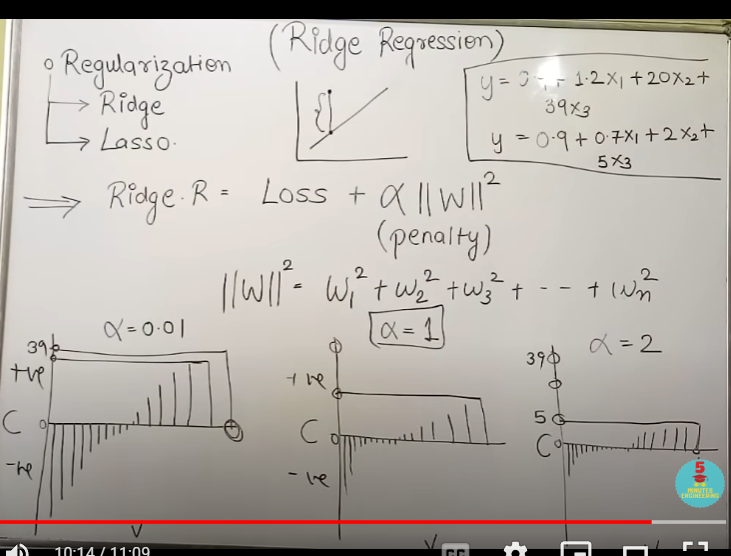 (Ridge Regression)
Regularization
→ Ridge
→ Lasso.
1.2x₁ + 20x₂ +
39x₃
y = 0.9 + 0.7x₁ + 2x₂ +
5x₃
⇒ Ridge.R = Loss + α ||W||²
(penalty)
||W||² = W₁² + W₂² + W₃² + - - + Wn²
α = 0.01
α = 1
α = 2
39
+ve
C
-ve
+ve
C
-ve
39
5
C
5
MINUTES
ENGINEERING
10:14 / 11:09
CC